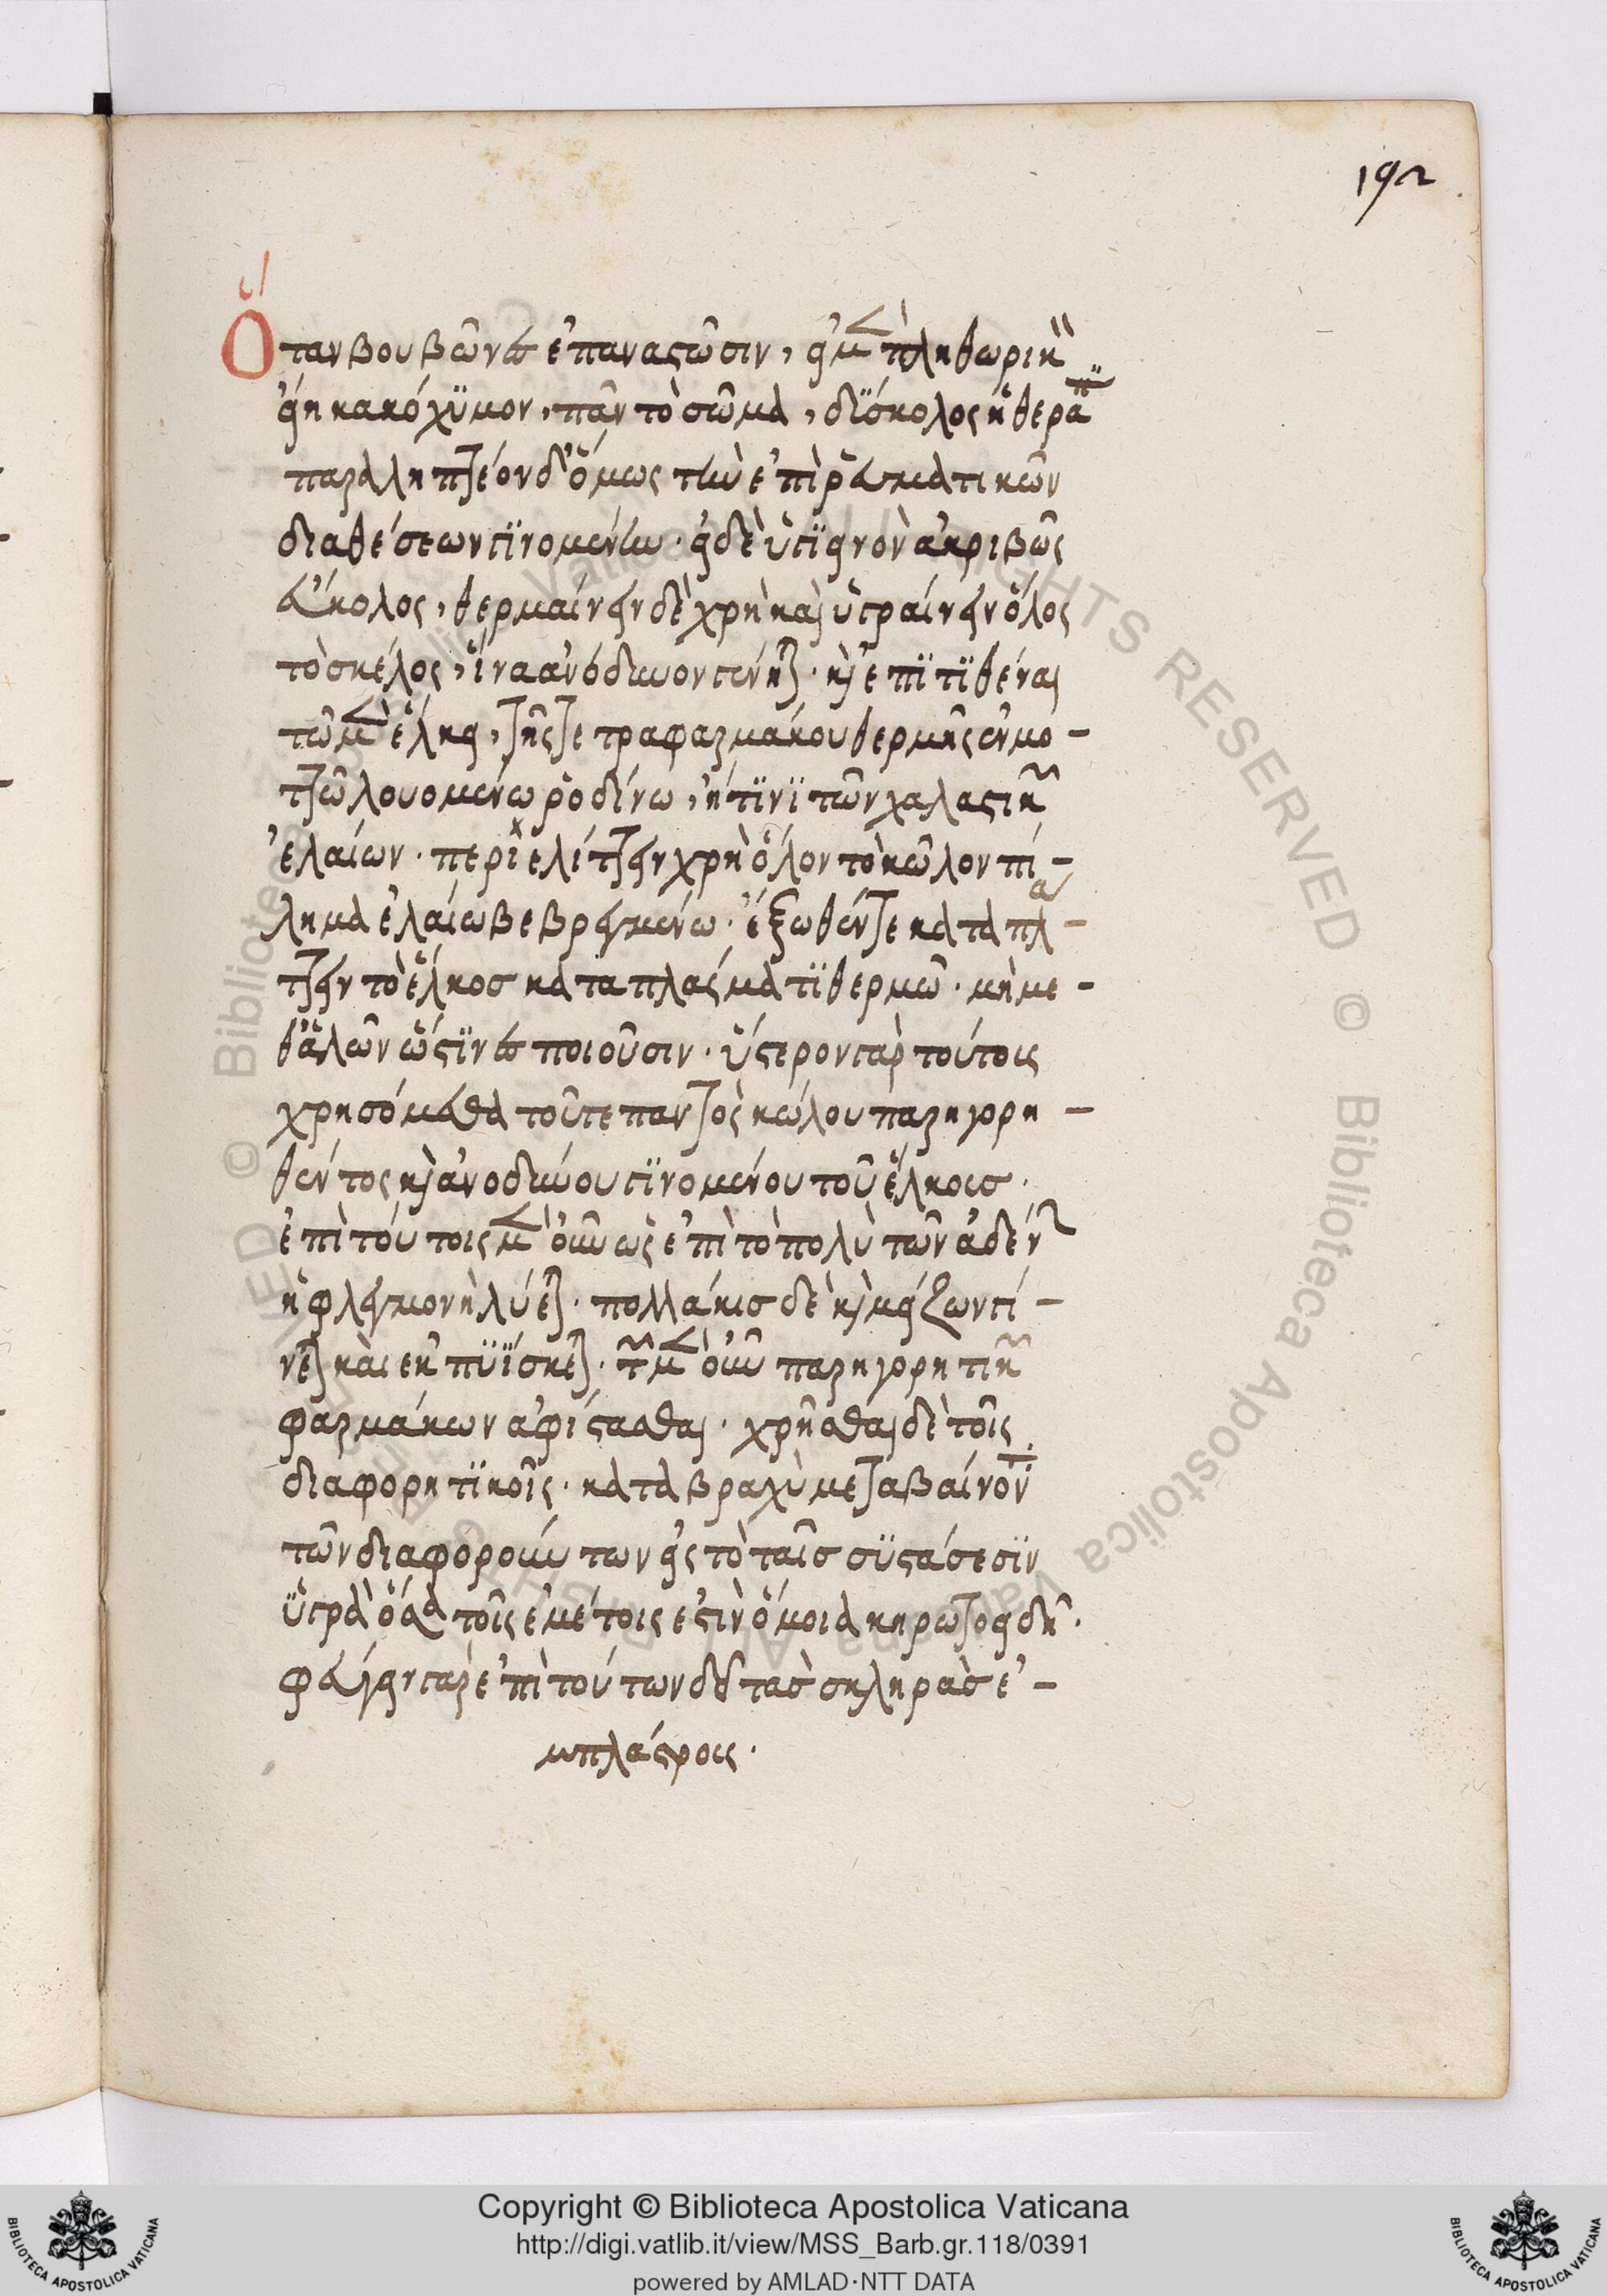 192
Ὅταν βουβῶνες ἐπαναστῶσιν, εἰ μὲν πληθωρικὸν
εἴη ἢ κακόχϋμον, πᾶν τὸ σῶμα, δϊσκολος ἡ θερα
παραληπτέον δ' ὅμως τὴν ἐπὶ ῥευματικῶν
διαθέσεων γϊνομένην. εἰ δὲ ὑγϊεινὸν ἀκριβῶς
εὔκολος, θερμαίνειν δὲ χρὴ καὶ ὑγραίνειν ὅλος
τὸ σκέλος, ἵνα ἀνόδυνον γένηται. καὶ ἐπϊτϊθέναι
τῶ μὲν ἕλκει, τῆς τετραφαρμάκου θερμῆς ἐν μο-
τῶ λουομένω ῥοδίνω, ἤ τϊνϊ τῶν χαλαστικῶν
ἐλαίων. περιελίττειν χρὴ ὅλον τὸ κῶλον πί-
λημα ἐλαίω βεβρεγμένω. ἔξωθέν τε καταπλά-
ττειν τὸ ἕλκοσ καταπλάσματϊ θερμῶ. μὴ με-
θ' ἁλῶν ὥς τϊνες ποιοῦσιν. ὕστερον γὰρ τούτοις
χρησόμεθα τοῦτε παντὸς κώλου παρηγορη-
θέντος καὶ ἀνοδύνου γϊνομένου τοῦ ἕλκους.
ἐπὶ τούτοις μὲν οὖν ὡς ἐπὶ τὸ πολὺ τῶν ἀδένων
ἡ φλεγμονὴ λύεται. πολλάκισ δὲ καὶ μείζων γί-
νεται καὶ ἐκπϋΐσκεται. τῶν μὲν οὖν παρηγορητικῶν
φαρμάκων ἀφίστασθαι. χρῆσθαι δὲ τοῖς
διαφορητϊκοῖς. κατὰ βραχὺ μεταβαίνοντ
τῶν διαφορούντων εἰς τὸ ταῖσ σϋστάσεσϊν
ὑγρὰ ὅσα τοῖς ἐμέτοις ἐστὶν ὅμοια κηρωτοειδῆ.
φεύγειν γὰρ ἐπὶ τούτων δεῖ τὰσ σκληρὰσ ἐ-
μπλάστρους.
Copyright © Biblioteca Apostolica Vaticana
http://digi.vatlib.it/view/MSS_Barb.gr.118/0391
powered by AMLAD·NTT DATA
BIBLIOTECA APOSTOLICA VATICANA
BIBLIOTECA APOSTOLICA VATICANA